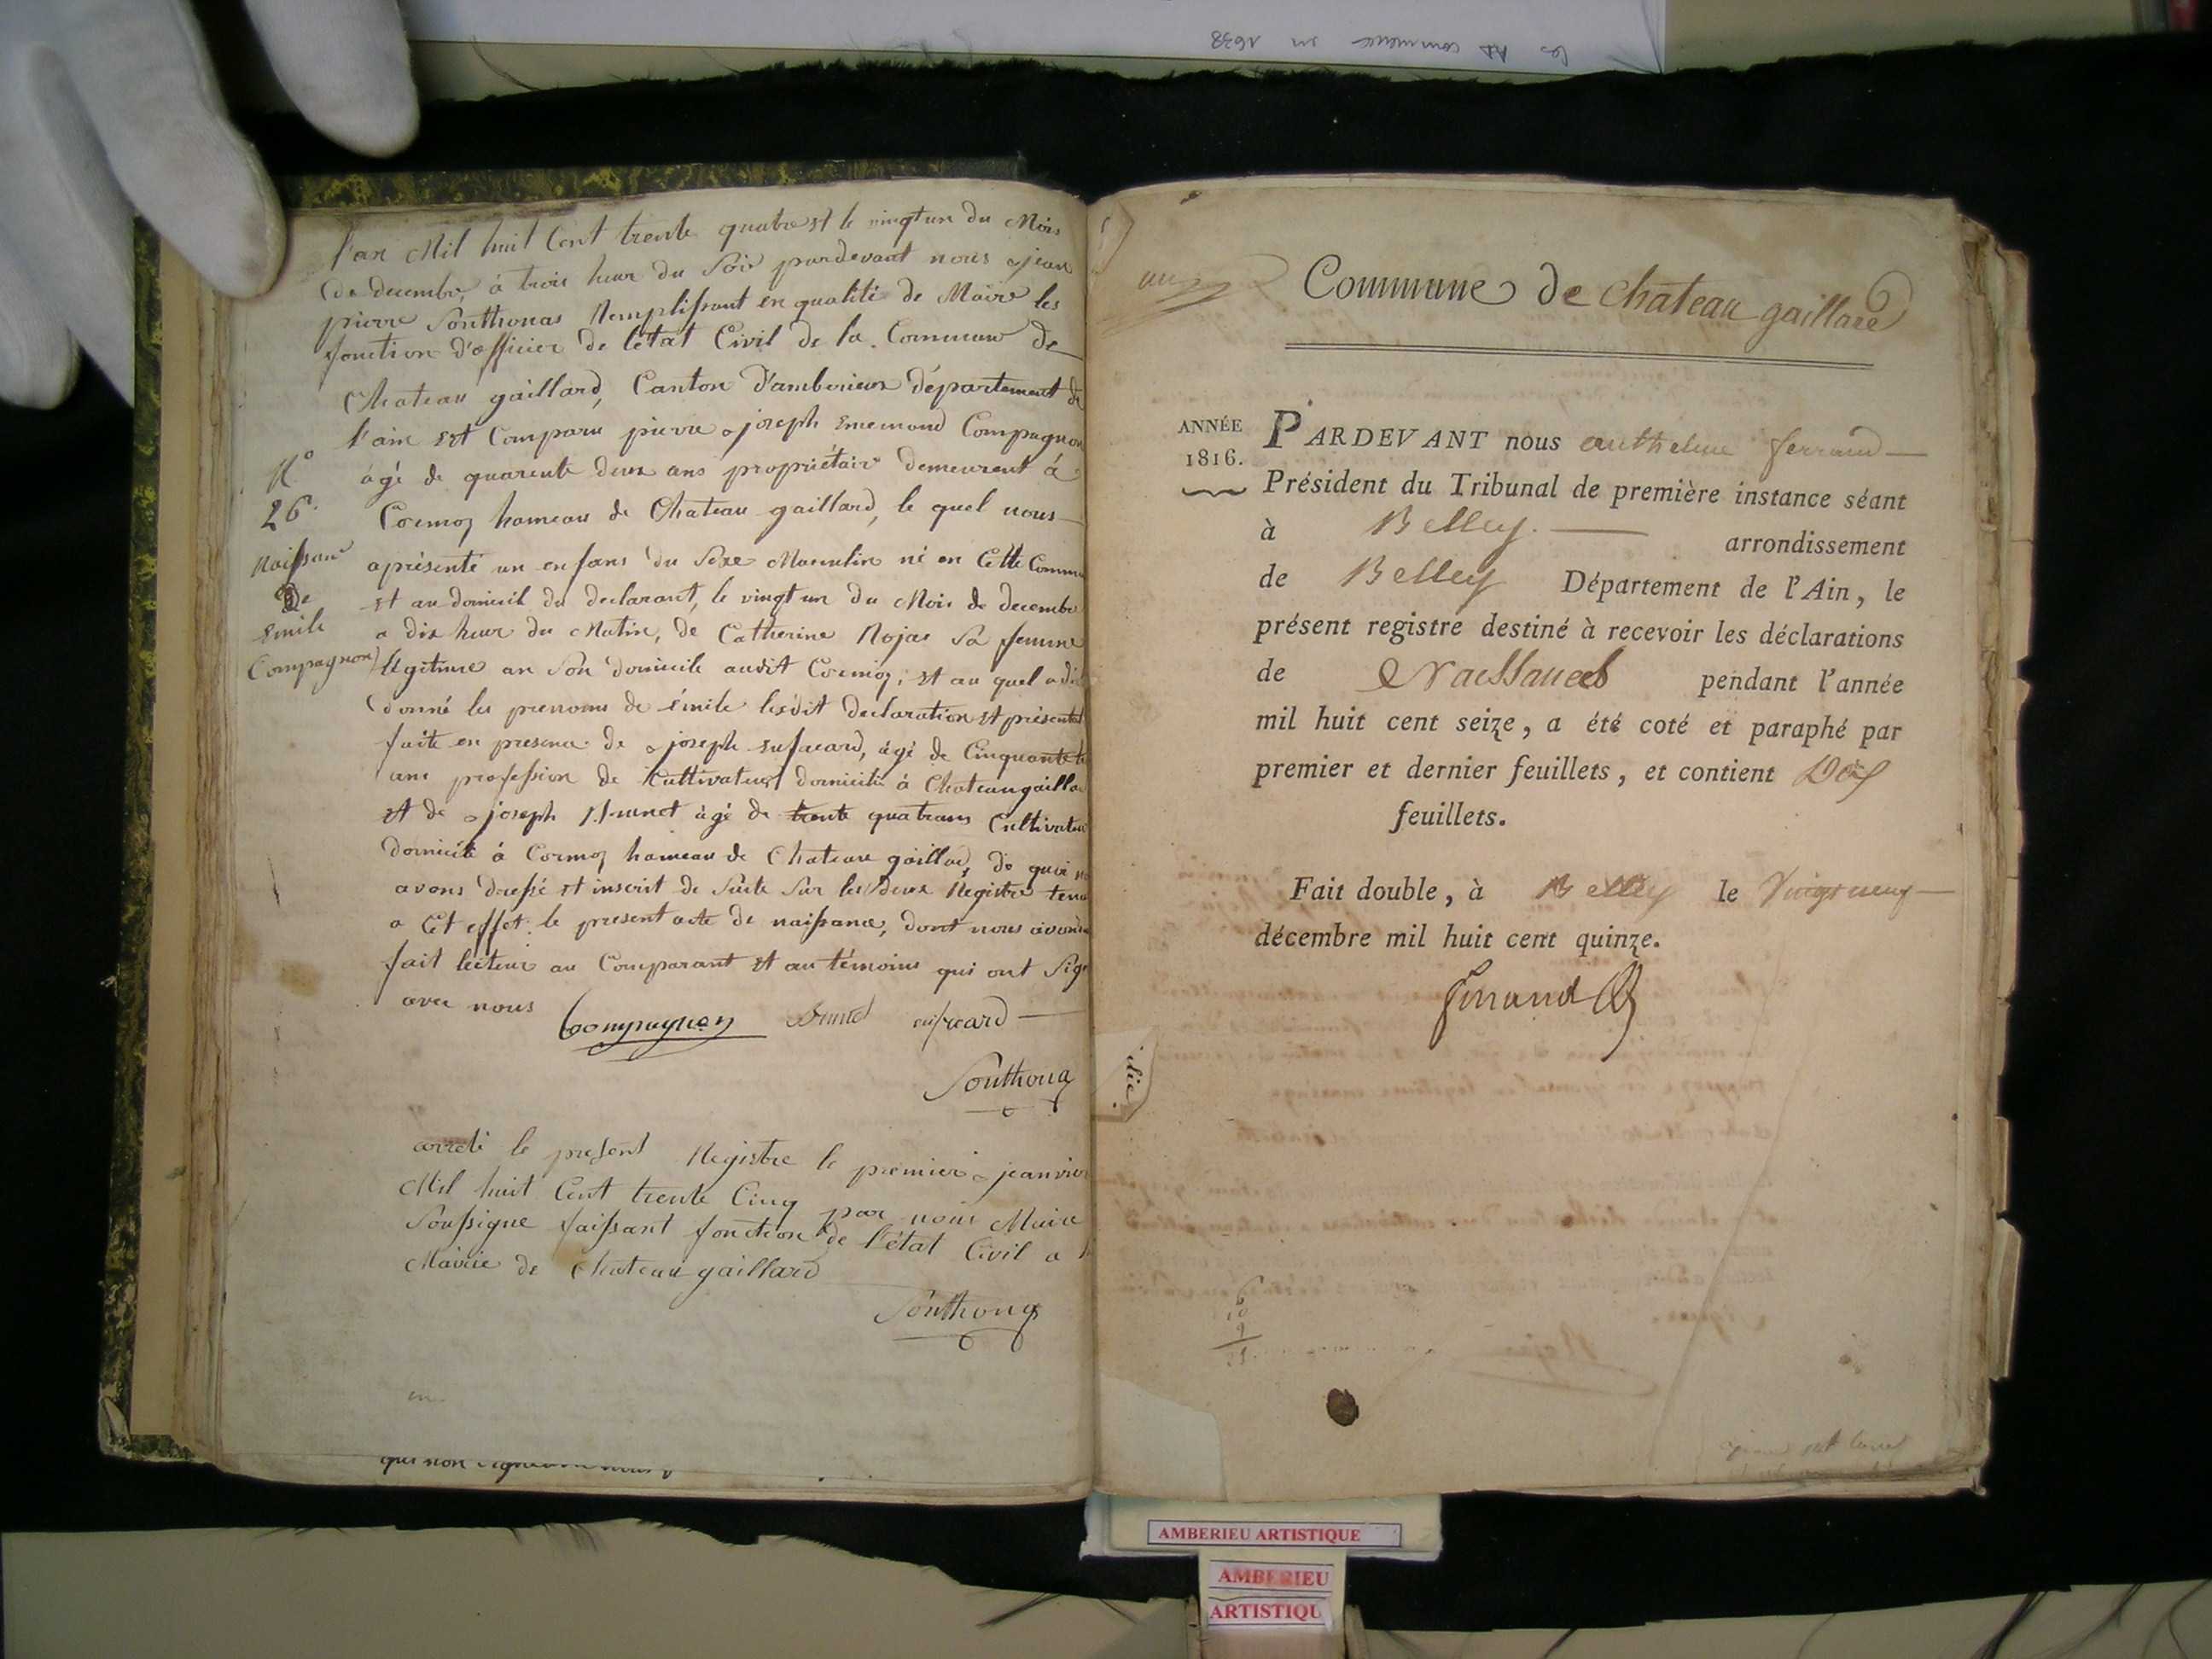 les commence en 1638
l'an Mil huit Cent trente quatre et le vingt un du Mois
de decembre, à trois heur du Soir pardevant nous jean
pierre Southonas Remplissant en qualité de Maire les
fonction d'officier de l'état Civil de la Commune de
Chateau gaillard, Canton d'amberieux département de
l'ain est Comparu pierre joseph Ennemond Compagnon
âgé de quarente deux ans propriétaire demeurent à
Cormoz hameau de Chateau gaillard, le quel nous
N°
26.
Naissance
De
Emile
Compagnon
aprésenté un enfans du Sexe Masculin né en Cette Commu
et au domicil du declarant, le vingt un du Mois de decembre
a dix heur du Matin, de Catherine Rojat Sa femme
légitime an Son domicile audit Cormoz, et au quel a dit
donné les prenoms de émile lesdit declaration et présentat
faite en presence de joseph enfacard, âgé de Cinquante
ans profession de Cultivateur domicilié à Chateaugailla
et de joseph Brunet âgé de trente quatrans Cultivateu
domicilié à Cormoz hameau de Chateau gaillard, de quoi no
avons dressé et inscrit de Suite Sur les deux Registre tenu
a Cet effet le present acte de naissance, dont nous avons
fait lecteur au Comparant et au témoins qui ont Sig
avec nous
Compagnon Brunet enfacard
Southona
arreté le present Registre le premier jeanvier
Mil huit Cent trente Cinq par nous Maire
Soussigne faissant fonction de l'état Civil a
Mairie de Chateau gaillard
Southona
Commune de Chateau gaillard
ANNÉE
1816.
PARDEVANT nous anthelme ferrand
Président du Tribunal de première instance séant
à Belley. arrondissement
de Belley Département de l'Ain, le
présent registre destiné à recevoir les déclarations
de Naissances pendant l'année
mil huit cent seize, a été coté et paraphé par
premier et dernier feuillets, et contient Dix
feuillets.
Fait double, à Belley le Vingt neuf
décembre mil huit cent quinze.
ferrand
6
10
9
25
AMBERIEU ARTISTIQUE
AMBERIEU
ARTISTIQU